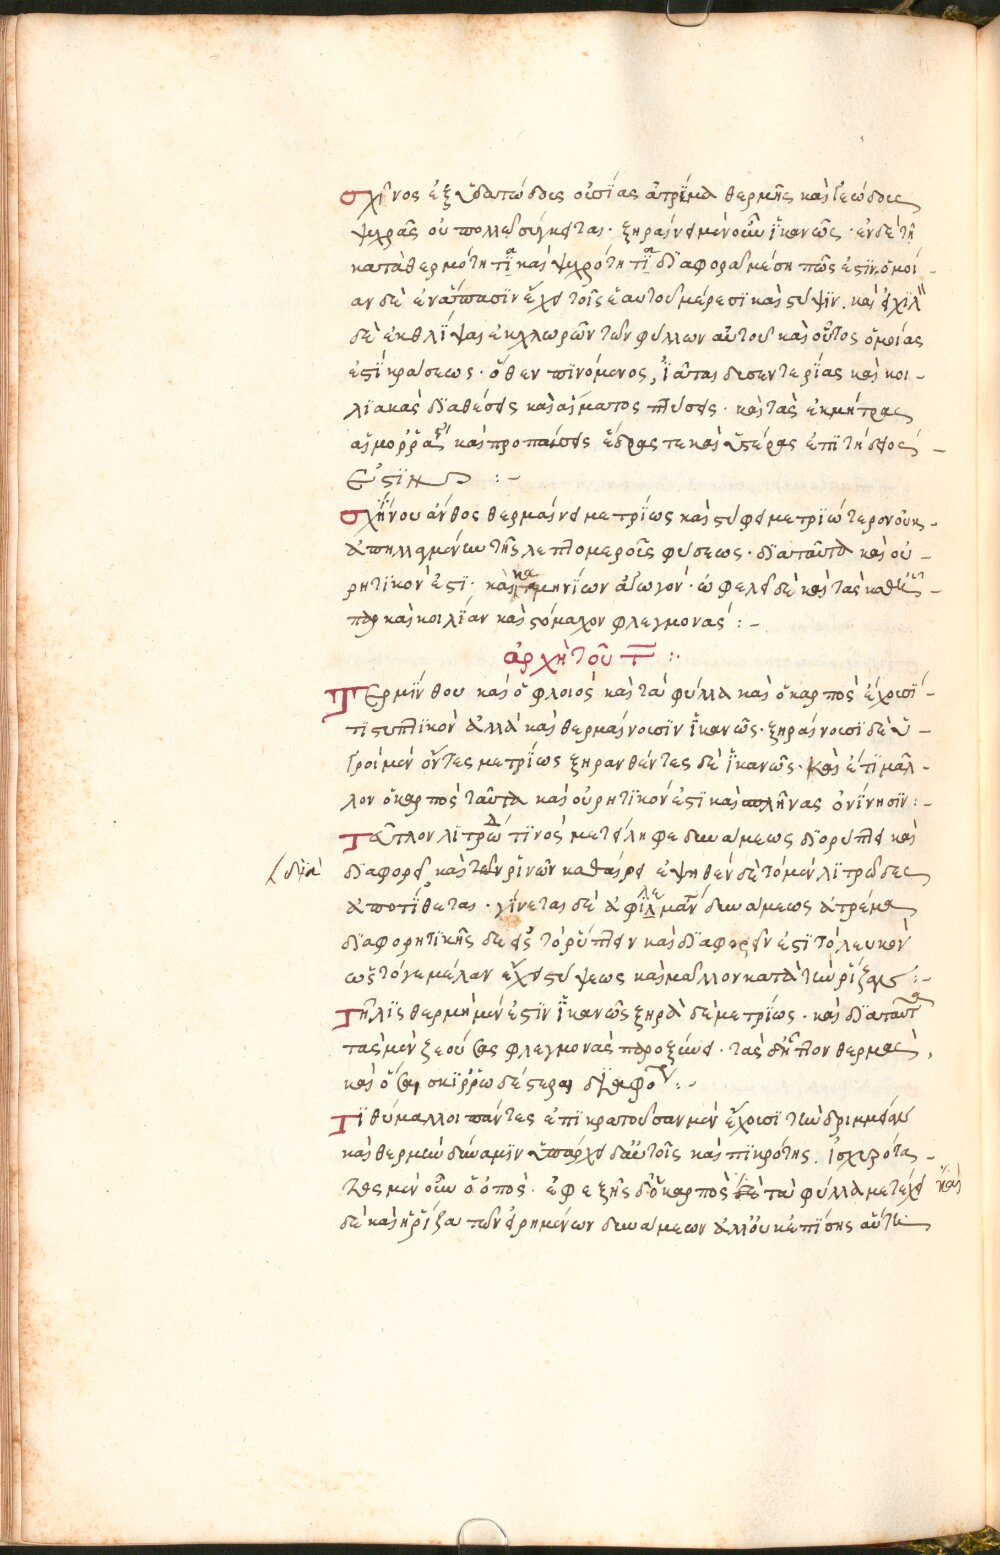 σχῖνος ἐξ ὑδατώδους οὐσίας ἀτρέμα θερμῆς καὶ γεώδους
ψυχρᾶς οὐ πολλῆς σύγκειται· ξηραίνει μὲν οὖν ἱκανῶς· ἐν δὲ τῆ
κατὰ θερμότητα καὶ ψυχρότητα διαφορᾶ μέση πῶς ἐστιν. ὁμοί-
αν δὲ ἐν ἅπασιν ἔχει τοῖς ἑαυτοῦ μέρεσι καὶ στύψιν. καὶ εἰ χυλ
δὲ ἐκθλίψας ἐκ χλωρῶν τῶν φύλλων αὐτοῦ καὶ οὗτος ὁμοίας
ἐστὶ κράσεως· ὅθεν πινόμενος, ἰᾶται δεσεντερίας καὶ κοι-
λιακὰς διαθέσεις καὶ αἵματος πτύσεις· καὶ τὰς ἐκ μήτρας
αἱμορραγίας καὶ προπτώσεις ἕδρας τε καὶ ὑστέρας ἐπιτήδειος
ἐστιν :-
σχίνου ἄνθος θερμαίνει μετρίως καὶ στύφει μετριώτερον οὐκ
ἀπηλλαγμένον τῆς λεπτομεροῦς φύσεως· διὰ ταῦτα καὶ οὐ-
ρητικὸν ἐστί· καὶ καταμηνίων ἀγωγόν· ὠφελεῖ δὲ καὶ τὰς καθ'
ἧπαρ καὶ κοιλίαν καὶ στόμαχον φλεγμονάς :-
ἀρχὴ τοῦ Τ :·
Τερμίνθου καὶ ὁ φλοιὸς καὶ τὰ φύλλα καὶ ὁ καρπὸς ἔχουσί
τι στυπτικὸν ἀλλὰ καὶ θερμαίνουσιν ἱκανῶς· ξηραίνουσι δὲ ὑ-
γροὶ μὲν ὄντες μετρίως ξηρανθέντες δὲ ἱκανῶς· καὶ ἔτι μᾶλ-
λον ὁ καρπὸς ταῦτα καὶ οὐρητικόν ἐστι καὶ σπλῆνας ὀνίνησιν :-
Τεῦτλον λιτρώδ τινὸς μετείληφε δυνάμεως διορύπτει καὶ
(διὰ
διαφορεῖ καὶ τῶν ῥινῶν καθαίρει ἑψηθὲν δὲ τὸ μὲν λιτρῶδες
ἀποτίθεται· γίνεται δὲ ἀφλεγμάντ δυνάμεως ἀτρέμα
διαφορητικῆς δὲ εἰς τὸ ῥύπτειν καὶ διαφορεῖν ἐστὶ τὸ λευκὸν
ὡς τό γε μέλαν ἔχει στύψεως καὶ μᾶλλον κατὰ τὴν ῥίζαν :-
Τῆλις θερμὴ μὲν ἐστὶν ἱκανῶς ξηρὰ δὲ μετρίως· καὶ διὰ ταῦτα
τὰς μὲν ζεούσας φλεγμονὰς παροξύνει· τὰς δὲ ἧττον θερμὰς,
καὶ ὅσαι σκιρρωδέστεραι διαφορ :-
Τιθύμαλλοι πάντες ἐπικρατοῦσαν μὲν ἔχουσι τὴν δριμεῖαν
καὶ θερμὴν δύναμιν ὑπάρχει δὲ αὐτοῖς καὶ πικρότης. ἰσχυρότα-
τος μὲν οὖν ὁ ὀπὸς. ἐφεξῆς δὲ ὁ καρπὸς τὰ φύλλα μετέχει
καὶ
δὲ καὶ ἡ ῥίζα τῶν εἰρημένων δυνάμεων ἀλλ' οὐκ ἐπίσης αὕτη